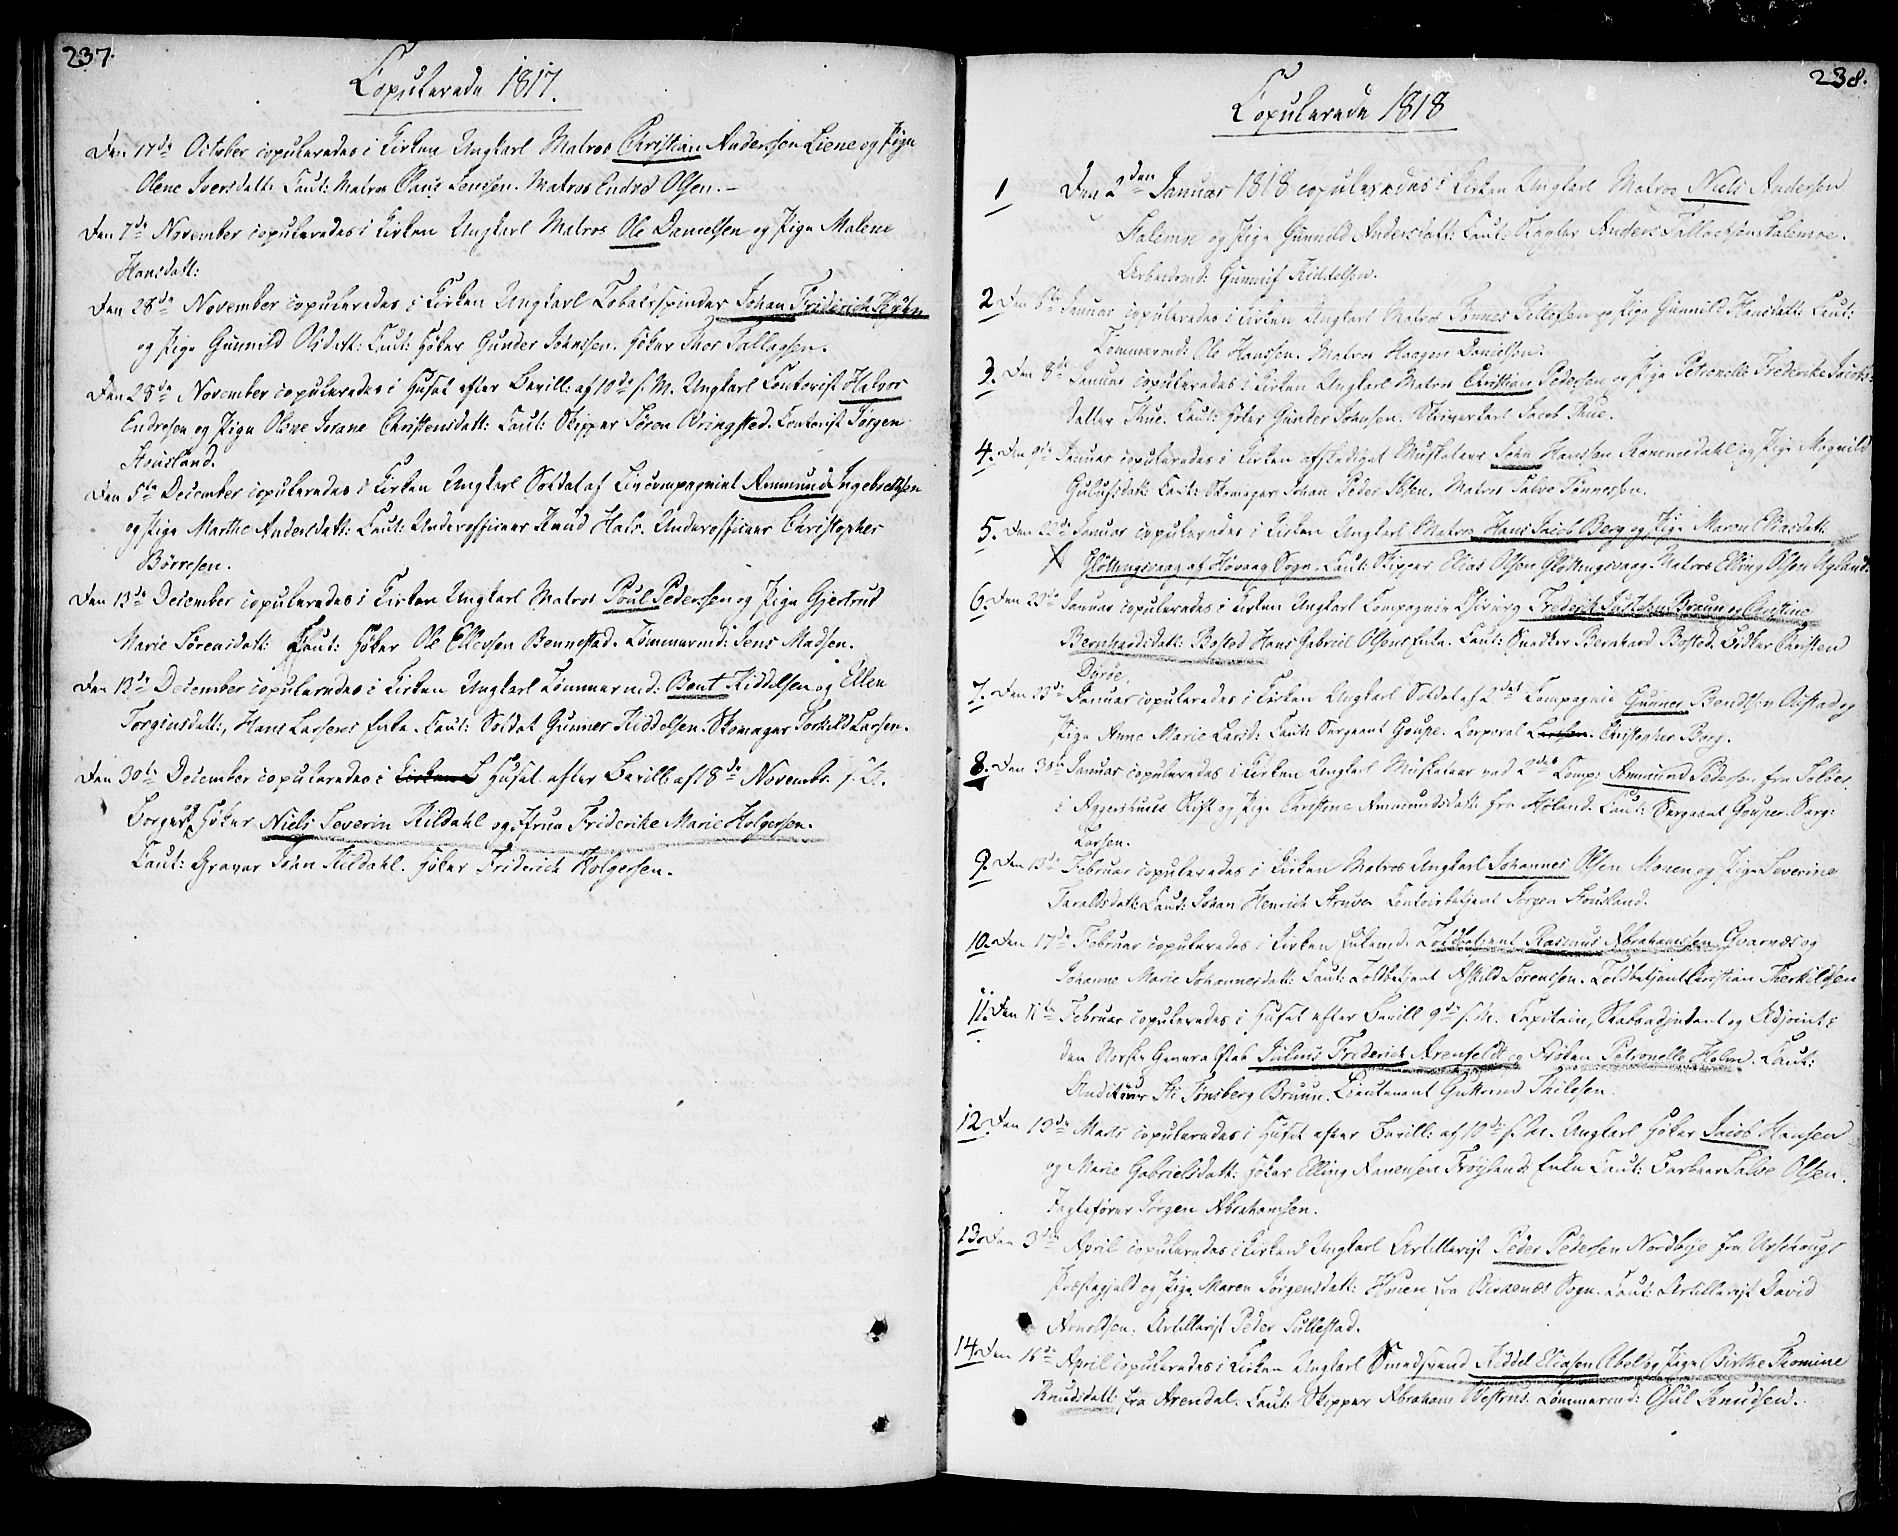 237.
Copulerede 1817.
Den 17de October copuleredes i Kirken Ungkarl Matros Christian Anderssen Liene og Pige
Olene Iversdatt: Caut: Matros Claus Jenssen. Matros Endre Olsen. –
Den 7de November copuleredes i Kirken Ungkarl Matros Ole Danielsen og Pige Malene
Hansdatt:
Den 28de November copuleredes i Kirken Ungkarl Tobaksspinder Johan Friderich
og Pige Gunnild Olsdatt: Caut: Høker Gunder Johnsen. Høker Thor Tallagsen.
Den 28de November copuleredes i Huset efter Bevill: af 10de f. M. Ungkarl Contorist Halvor
Endresen og Pige Oleve Jorane Christensdatt: Caut: Skipper Søren Bringsted. Contorist Jørgen
Housland.
Den 5te December copuleredes i Kirken Ungkarl Soldat af Livcompagniet Ammund Ingebretsen
og Pige Marthe Andersdatt: Caut: Underofficeer Knud Hals. Underofficeer Christopher
Börresen.
Den 13de December copuleredes i Kirken Ungkarl Matros Poul Pederssen og Pige Gjertrud
Marie Sørensdatt: Caut: Høker Ole Ellevsen Bennestad. Tømmermd: Jens Madsen.
Den 13de December copuleredes i Kirken Ungkarl Tømmermd: Bent Kiddelsen og Ellen
Torginsdatt:, Hans Larsens Enke. Caut: Soldat Gunner Kiddelsen. Skomager Torkild Larsen.
Den 30te December copuleredes i Huset efter Bevill: af 8de Novembr. f. A.
Borger og Høker Niels Severin Kildahl og Jfrue Friderike Marie Holgersen.
Caut: Graver Søn Kildahl. Høker Friderich Holgersen.
238.
Copulerede 1818
1 Den 2den Januar 1818 copuleredes i Kirken Ungkarl Matros Niels Andersen
Stalemoe og Pige Gunnild Andersdatt: Caut: Anders Tallachsøn Stalemoe.
Arbeidsmd: Gunnuf Kiddelsen.
2. Den Januar copuleredes i Kirken Ungkarl Matros Tønnes Tellefsen og Pige Gunnild Hansdatt: Caut:
Tømmermd: Ole Hanssen. Matros Haagen Danielsen.
3. Den 8de Januar copuleredes i Kirken Ungkarl Matros Christian Pedersen og Pige Petronelle Frederike Jacobs-
datter Thue. Caut: Høker Gunder Johnsen. Skriverkarl Jacob Thue.
4. Den 9de Januar copuleredes i Kirken afskediget Musketeer John Hanssen Rommedahl og Pige Magnild
Gulufsdatt: Caut: Skomager Johan Peder Ibsen. Matros Salve Tønnessen.
5. Den 22de Januar copuleredes i Kirken Ungkarl Matros Hans Jacob Berg og Pige Maren Eliasdatt:
X Glottingsvaag af Høvaag Sogn. Caut: Skipper Elias Olsen Glottingsvaag. Matros Elling Olsen
6. Den 23de Januar copuleredes i Kirken Ungkarl Compagnie Chirurg Frederik Braun og Christine
Bernhardsdatt: Bosted Hans Gabriel Olsens Enke. Caut: Snedker Bernhard Bosted. Fidler Christen
Dyröe.
7. Den 23de Januar copuleredes i Kirken Ungkarl Soldat af 2det Compagnie Gunner Bendtsen og
Pige Anne Marie Larsd: Caut: Sergeant Gouse. Corporal Christopher Berg.
8. Den 30te Januar copuleredes i Kirken Ungkarl Musketeer ved 2det Comp: Ammund Pedersen fra Soløer
i Aggershuus Stift og Pige Christine Ammundsdatt: fra Høland. Caut: Sergeant Gouse. Serg:
Larsen.
9. Den 13de Februar copuleredes i Kirken Matros Ungkarl Johannes Olsen Monen og Pige Severine
Taraldsdatt: Caut: Johan Henrich Struve. Contoirbetjent Jørgen Housland.
10. Den 17de Februar copuleredes i Kirken Enkemd. Toldbetjent Rasmus Abrahamsen Gvarnæs og
Johanne Marie Johannesdatt: Caut: Toldbetjent Afkild Sørenssen. Toldbetjent Christian Therkildsen
11. Den Februar copuleredes i Huset efter Bevill 9de f. M. Capitain, Stabsadjudant og Adjoint i
den Norske Generalstab Julius Friderich Arenfeldt og Frøken Petronelle Holm. Caut:
Auditeur Tønsberg Bruun. Lieutenant Guttorm Thilesen.
12. Den 13de Marts copuleredes i Huset efter Bevill: af 10de f. M. Ungkarl Høker Jacob Hansen
og Marie Gabrielsdatt: Høker Elling Aanensen Frøysland Enke Caut: Barbeer Salve Olsen.
Jagtefører Jørgen Abrahamsen.
13. Den 3die April copuleredes i Kirken Ungkarl Artillerist Peder Pedersen Nordbye fra Urschougs
Præstegjeld og Pige Maren Jørgensdatt: Huen fra Birkenæs Sogn. Caut: Artillerist David
Arnoldsen. Artillerist Peder Sollestad.
14. Den 16de April copuleredes i Kirken Ungkarl Smedsvend Kiddel Eliasen Abel og Pige Birthe Thomine
Knudsdatt: fra Arendal. Caut: Skipper Abraham Westrus. Tømmermd: Osul Knudsen.